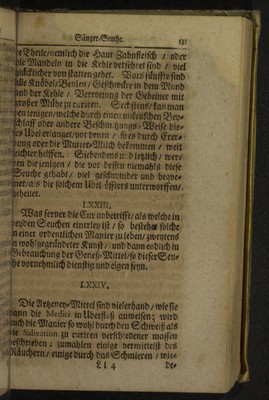 Säuger-Seuche. 531
Theile / nemlich die Haut Zahnfleisch / oder
die Mandeln in der Kehle versehret sind / viel
glücklicher von statten gehet. Vors fünffte sind
alle Knöbel / Beulen / Geschwüre in dem Mund
und der Kehle / Verrottung der Gebeiner mit
grosser Mühe zu curiren. Sechstens / kan man
den jenigen / welche durch einen unkeuschen Bey-
schlaff oder andere Beschmitzungs-Weise die-
ses Ubel erlanget / vor denen / so es durch Erer-
bung oder die Mutter-Milch bekommen / weit
leichter helffen. Siebendens und letzlich / wer-
den die jenigen / die vor dessen niemahls diese
Seuche gehabt / viel geschwinder und beque-
mer / als die solchem Ubel öffters unterworffen /
geheilet.
LXXIII.
Was ferner die Cur anbetrifft / als welche in
beyden Seuchen einerley ist / so bestehe solche
in einer ordentlichen Manier zu leben / zweytens
in wohlgegründeter Kunst / und dann endlich in
Gebrauchung der Geneß-Mittel / so dieser Seu-
che vornehmlich dienstig und eigen seyn.
LXXIV.
Die Artzeney-Mittel sind vielerhand / wie sie
dann die Medici in Uberfluß anweisen; wird
auch die Manier so wohl durch den Schweiß als
die Salivation zu curiren verschiedener massen
beschrieben; zumahlen einige vermittelst des
Räuchern / einige durch das Schmieren / wie-
Ll 4 de-